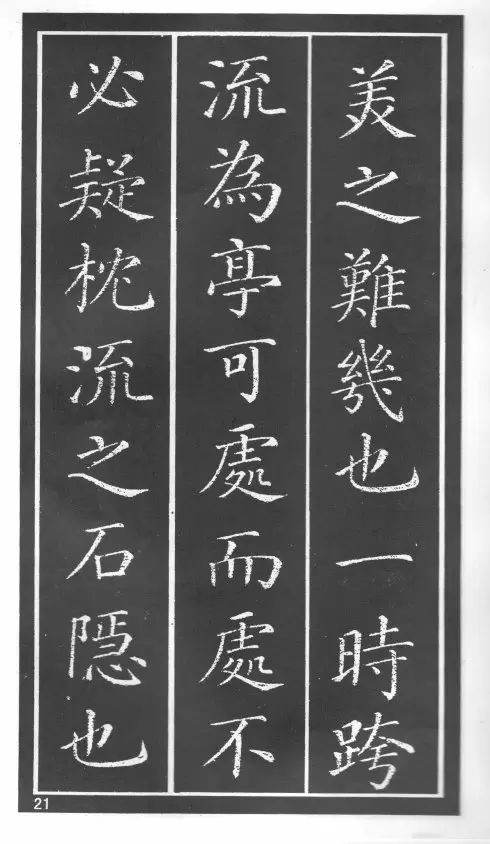 美之難幾也一時跨
流為亭可處而處不
必疑枕流之石隱也
21